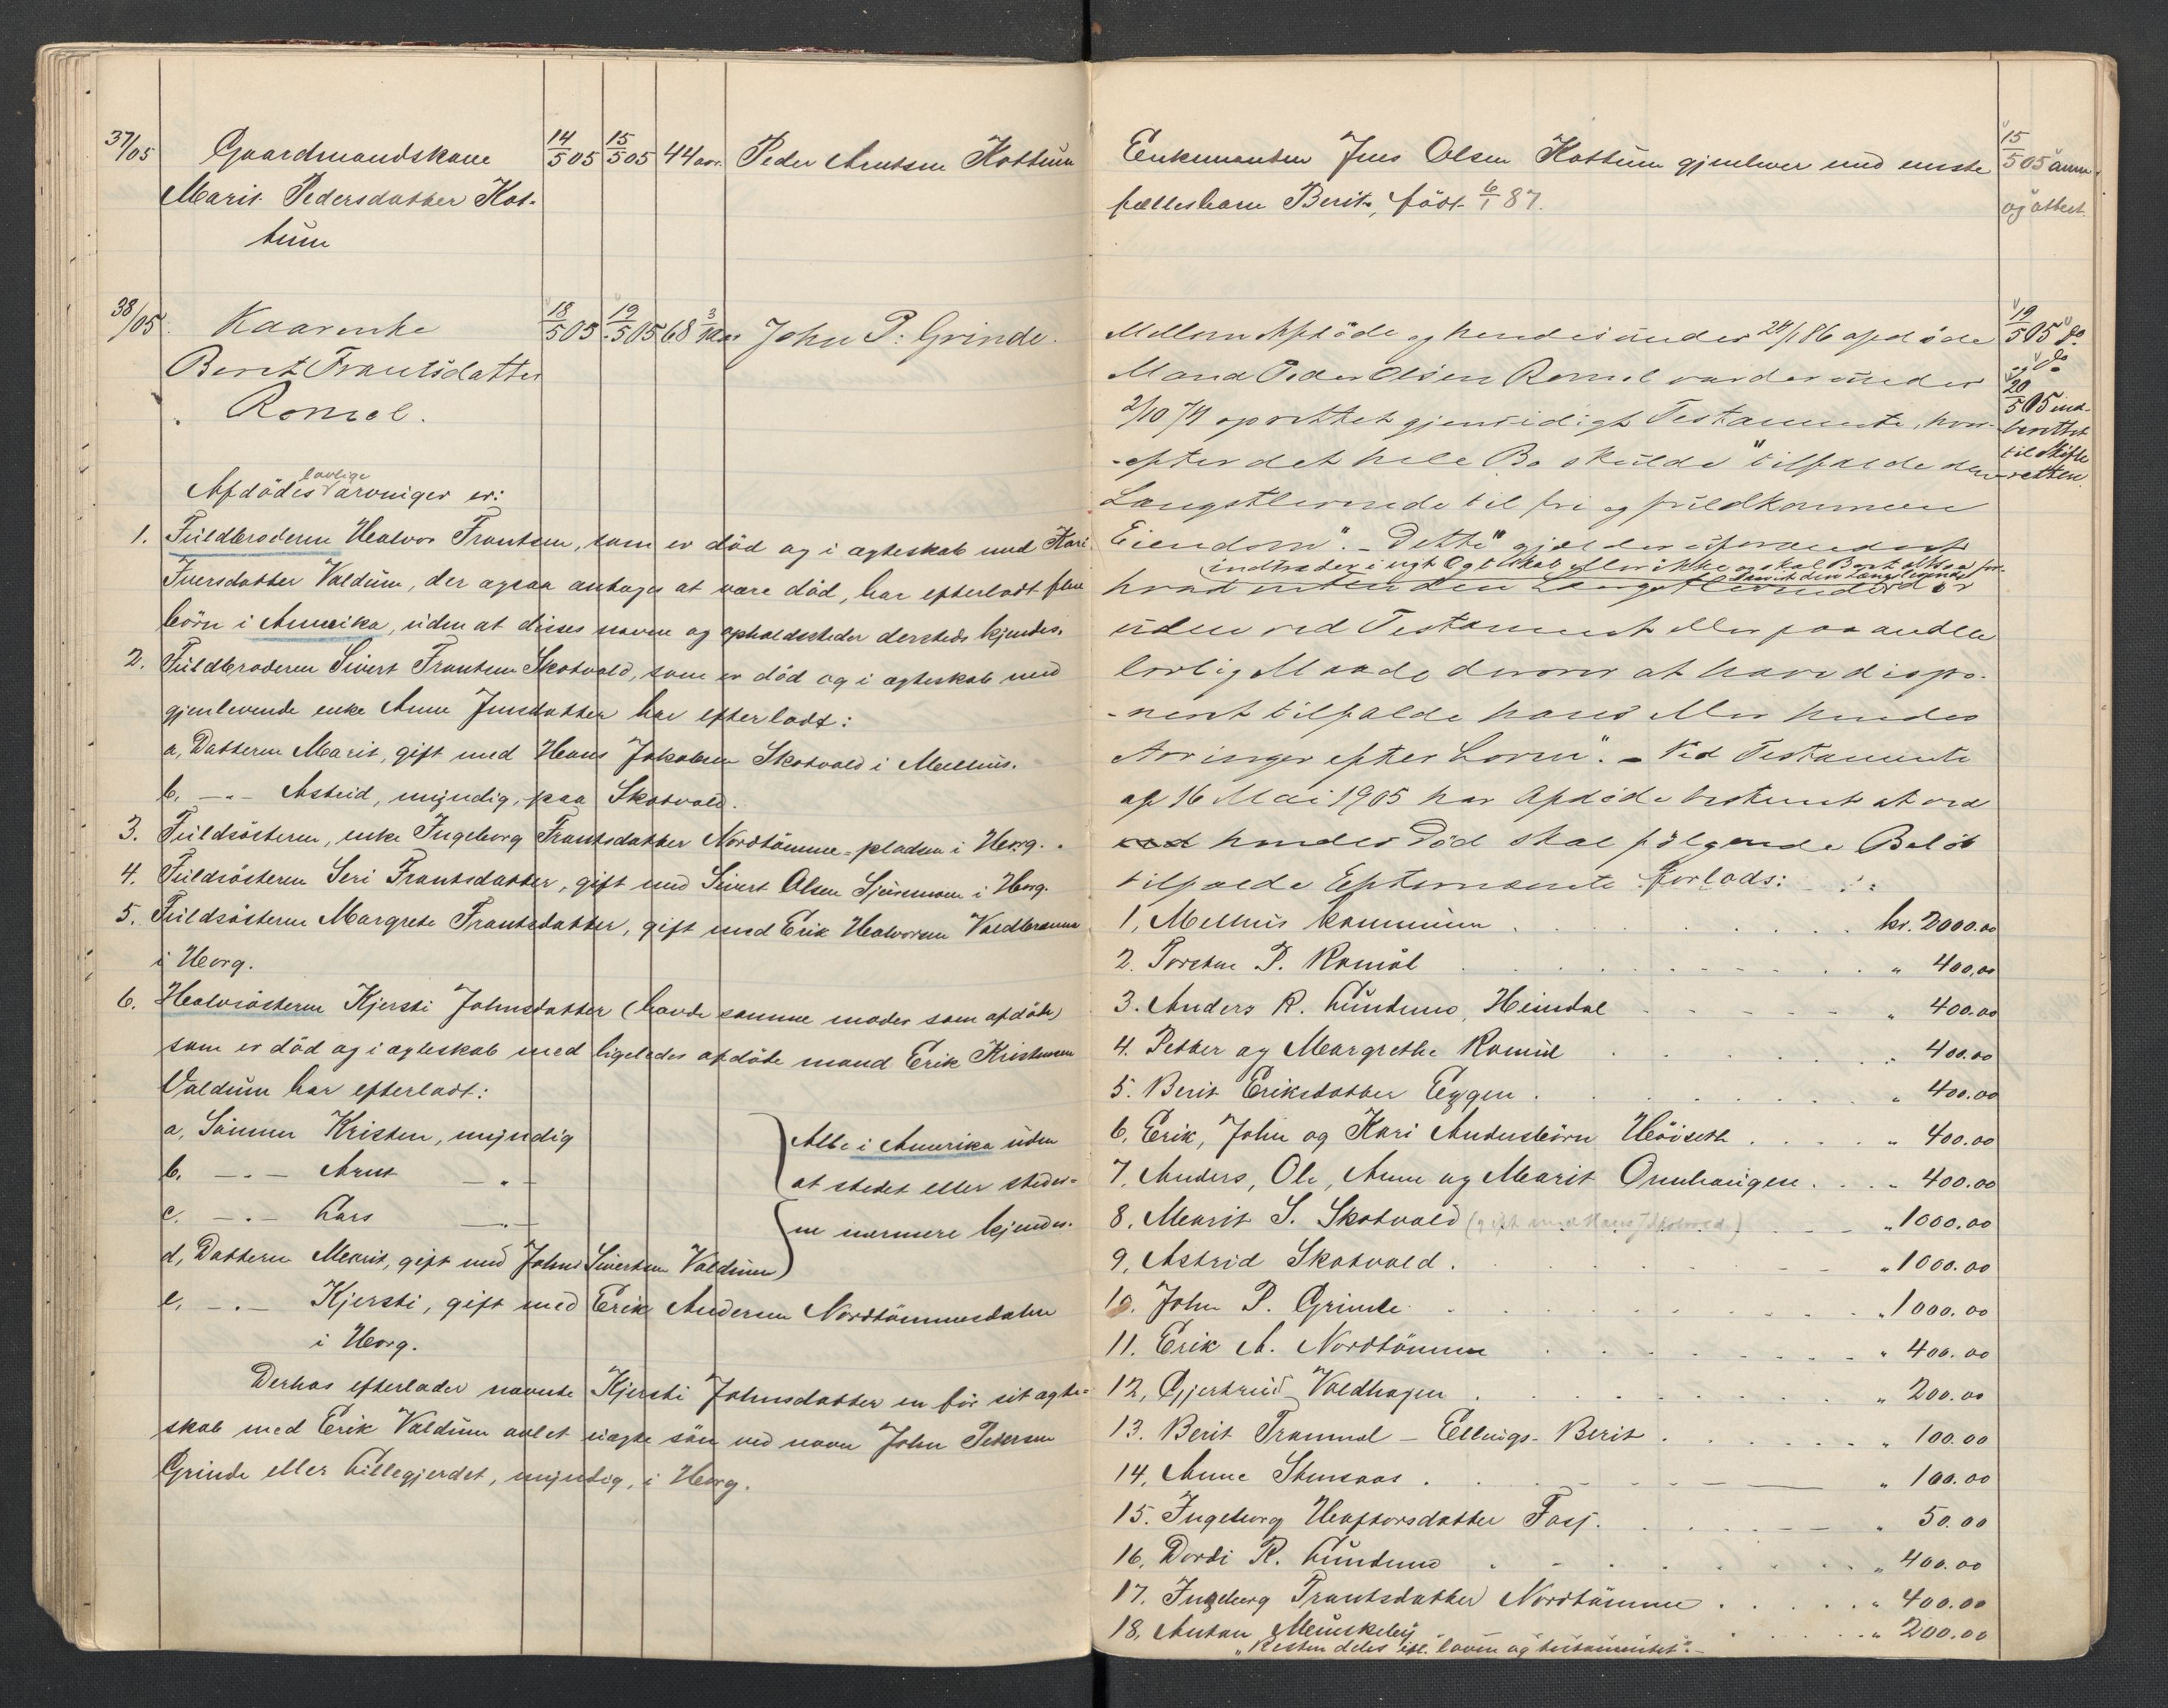 37/05 Gaardmandskone 14/5 05 15/5 05 44 aar. Peder Arntsen Kottum
Marit Pedersdatter Kot-
tum
38/05. Kaarenke 18/5 05 19/5 05 68 3/12 aar John P. Grinde.
Berit Frantsdatter
Romol.
Afdödes lovlige arvinger er:
1. Fuldbroderen Halvor Frantsen, som er död og i ægteskab med Kari
Iversdatter Valdum, der ogsaa antages at være död, har efterladt flere
börn i Amerika, uden at disses navne og opholdssteder dersteds kjendes.
2. Fuldbroderen Sivert Frantsen Skotvold, som er död og i ægteskab med
gjenlevende enke Anne Jensdatter har efterladt:
a, Datteren Marit, gift med Hans Jakobsen Skotvold i Melhus.
b. -"- Astrid, myndig, paa Skotvold.
3. Fuldsösteren, enke Ingeborg Frantsdatter Nordtömme-pladsen i Horg.
4. Fuldsösteren Seri Frantsdatter, gift med Sivert Olsen Sjursmoen i Horg.
5. Fuldsösteren Margrete Frantsdatter, gift med Erik Halvorsen Valdbrauten
i Horg.
6. Halvsösteren Kjersti Johnsdatter (havde samme moder som afdöde)
som er död og i ægteskab med ligeledes afdöde mand Erik Kristensen
Valdum har efterladt:
a, Sönnen Kristen, myndig
b. -"- Arnt -"-
c. -"- Lars -"-
d, Datteren Marit, gift med Johns Sivertsen Valdum
Alle i Amerika uden
at stedet eller steder-
ne nærmere kjendes.
e. -"- Kjersti, gift med Erik Andersen Nordtömmesdalen
i Horg.
Derhos efterlader nævnte Kjersti Johnsdatter en för sit ægte-
skab med Erik Valdum avlet uægte sön ved navn John Pedersen
Grinde eller Lillegjerdet, myndig, i Horg.
Enkemanden Jens Olsen Kottum gjenlever med eneste
fællesbarn Berit, födt 6/1 87.
15/5 05 anm.
og attest.
Mellem Afdöde og hendes under 24/1 86 afdöde
Mand Peder Olsen Romol var der under
2/10 74 oprettet gjensidigt Testamente, hvor-
efter det hele Bo skulde "tilfalde den
Længstlevende til fri og fuldkommen
Eiendom". - Dette "gjælder uforandret
indtræder i nyt Ægteskab eller ikke og skal Boet altsaa for-
hvad enten den Længstlevende
uden ved Testament eller paa anden
lovlig Maade derover at have dispo-
neret tilfalde hans eller hendes
Arvinger efter Loven". - Ved Testamente
af 16 Mai 1905 har Afdöde bestemt at ved
hendes Död skal fölgende Belöb
tilfalde Efternævnte forlods:
19/5 05 do.
og do
20/5 05 ind-
berettet
til skifte-
retten.
1, Melhus kommune kr. 2000.00
2. Torsten P. Romol " 400,00
3. Anders R. Lundemo, Heimdal " 400.00
4. Petter og Margrethe Romul " 400.00
5. Berit Eriksdatter Eggen " 400.00
6, Erik, John og Kari Andersbörn Höiseth " 400.00
7. Anders, Ole, Anne og Marit Omhaugen " 400.00
8. Marit S. Skotvold (gift med Hans J. Skotvold.) " 1000.00
9, Astrid Skotvold. " 1000.00
10. John P. Grinde " 1000.00
11. Erik A. Nordtömme " 400.00
12, Gjertrud Voldhagen " 200.00
13. Berit Tranmel - Ellings-Berit " 100.00
14. Anne Stensaas " 100.00
15. Ingeborg Haftorsdatter " 50.00
16, Dordi R. Lundemo " 400.00
17. Ingeborg Frantsdatter Nordtömme " 400.00
18, Anton " 200.00
"Resten deles efl. loven og testamentet".-